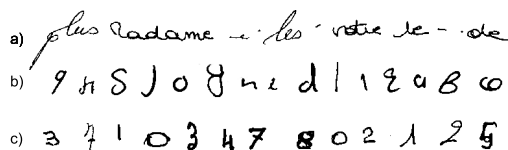 a) plus Madame - i - les - votre le - de
b) 9 n S J o y n e d l 1 2 a B co
c) 3 7 1 0 3 4 7 8 0 2 1 2 5